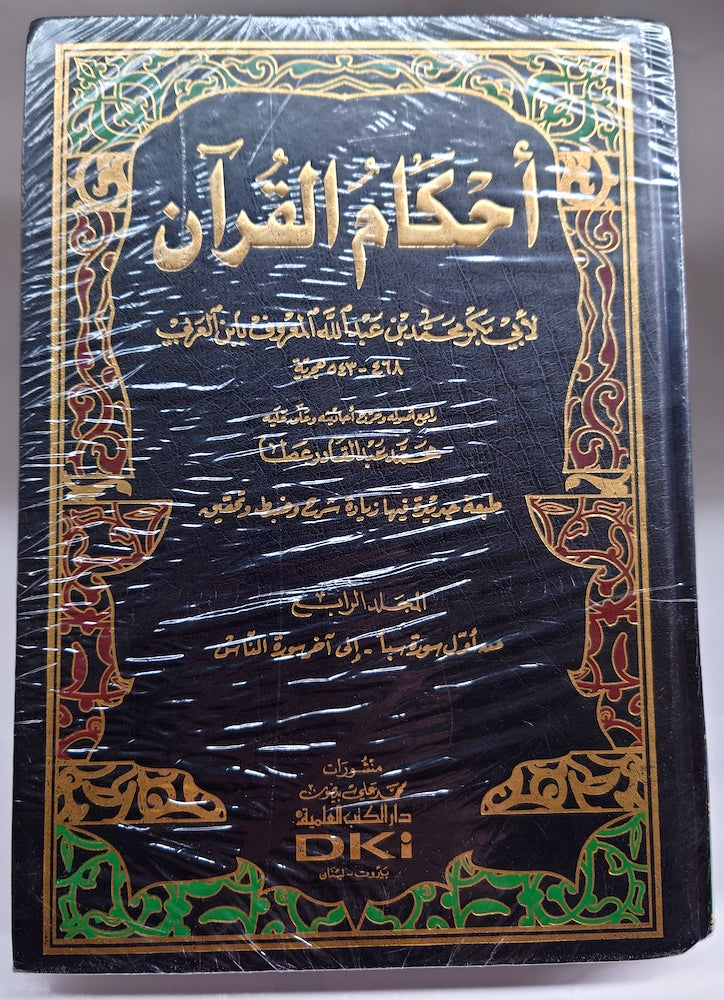 أَحْكَامُ القُرآن
لأبي بَكر محمَّد بن عَبْد اللَّه المعرُوف بابن العَرَبي
٤٦٨ - ٥٤٣ هجرية
راجع أصوله وخرج أحاديثه وعلّق عليه
محمَّد عَبْد القَادر عَطا
طبعة جديدة فيها زيادة شرح وضبط وتحقيق
المجلد الرابع
من أوّل سورة سبأ - إلى آخر سورة النَّاس
منشورات
محمد علي بيضون
دار الكتب العلمية
DKi
بيروت - لبنان